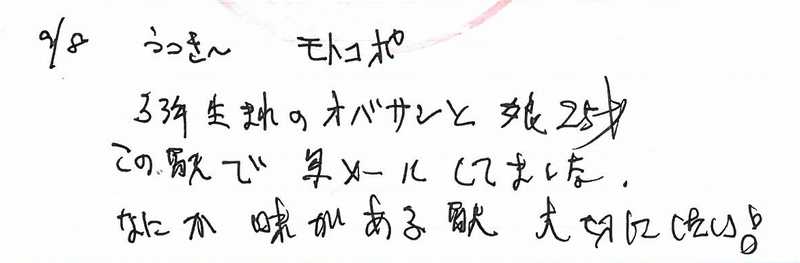 9/8 うつき〜 モトコポ
33年生まれのオバサンと娘25才
この駅で 写メールしてました.
なにか味がある駅 大切にしたい!